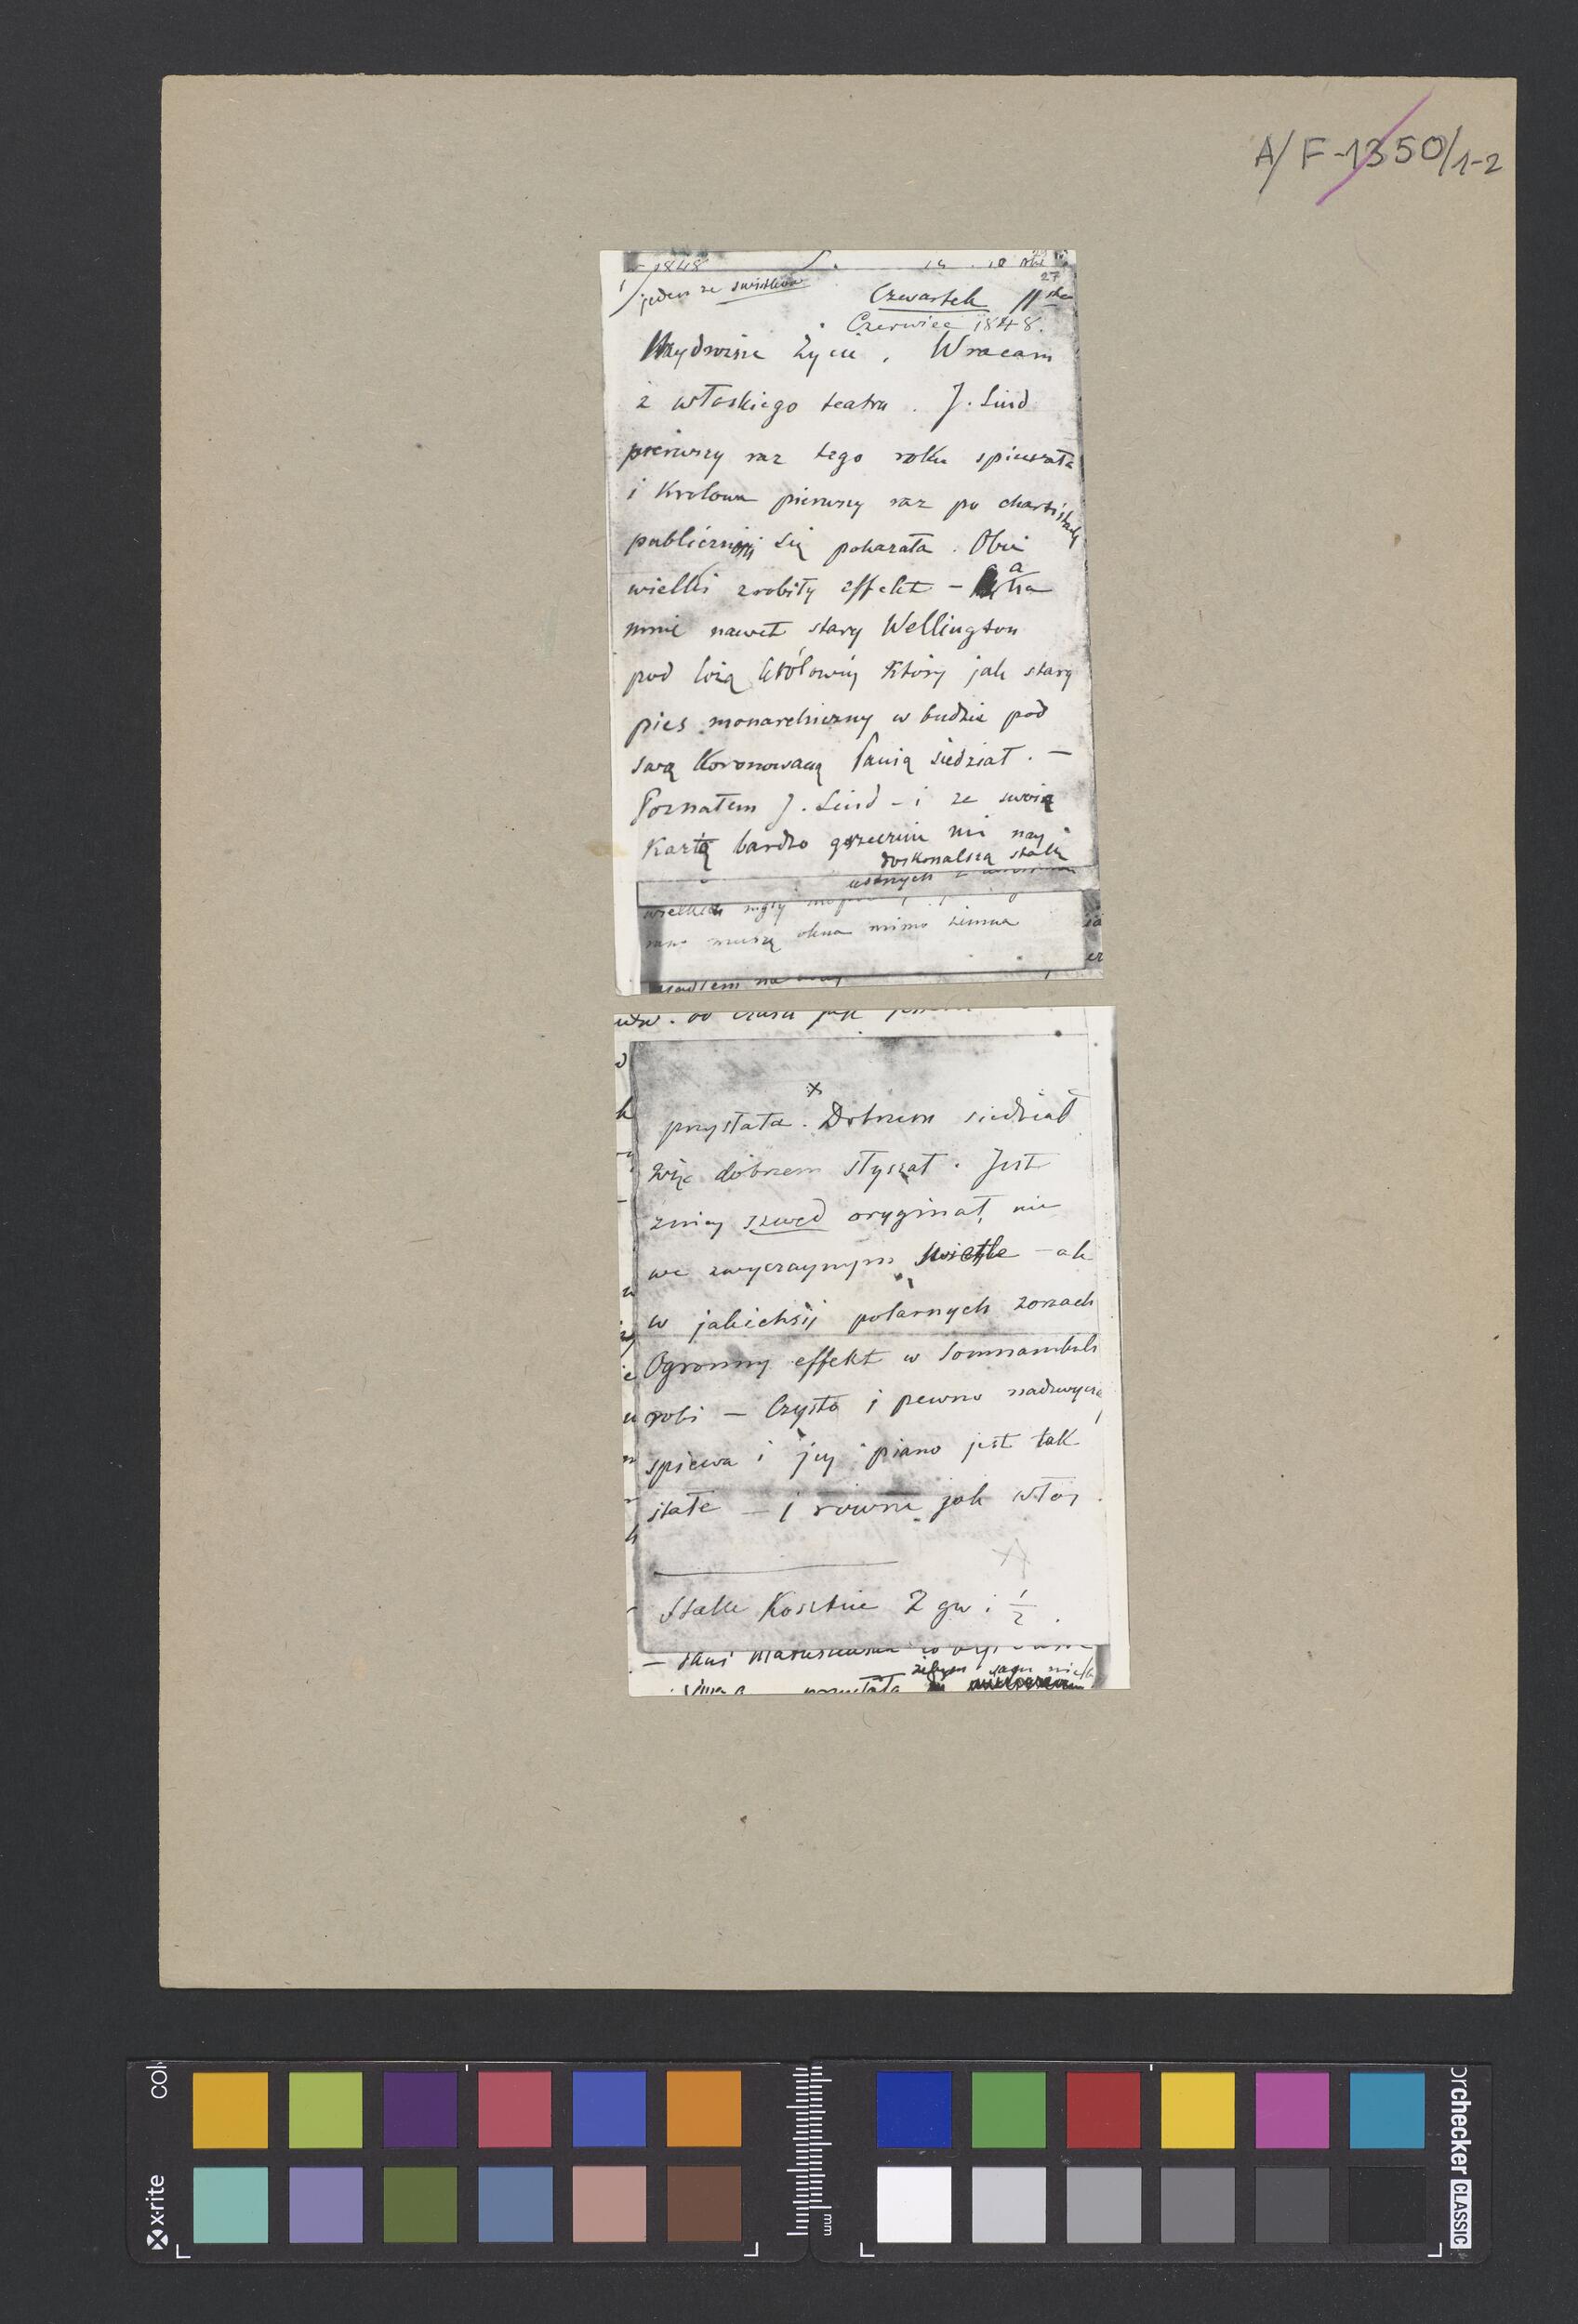 A/F-1350/1-2
1848
jeden ze świstków
27
Czwartek 11
Czerwiec 1848.
Najdroższe Życie. Wracam
z włoskiego teatru. J. Lind
pierwszy raz tego roku spiewała
i Krolowa pierwszy raz po chartistach
publiczniej się pokazała. Obie
wielki zrobiły effekt – a na
mnie nawet stary Wellington
pod lożą królowéy który jak stary
pies monarchiczny w budzie pod
swą Koronowaną Panią siedział. –
Poznałem J. Lind – i ze swoią
Kartą bardzo grzecznie mi nay
doskonalszą stallę
muszą okna mimo zimna
przysłała. Dobrzem siedział
więc dobrzem słyszał. Jest
zniey szwed oryginał, nie
we zwyczaynym świetle – ale
w jakichsiś polarnych zorzach
Ogromny effekt w Somnambuli
robi – Czysto i pewno nadzwycza
spiewa i jey piano jest tak
stałe – i równe jak włos.
X
Stalle Kosztuie 2 gw i 1/2.
x-rite
mm
colorchecker CLASSIC